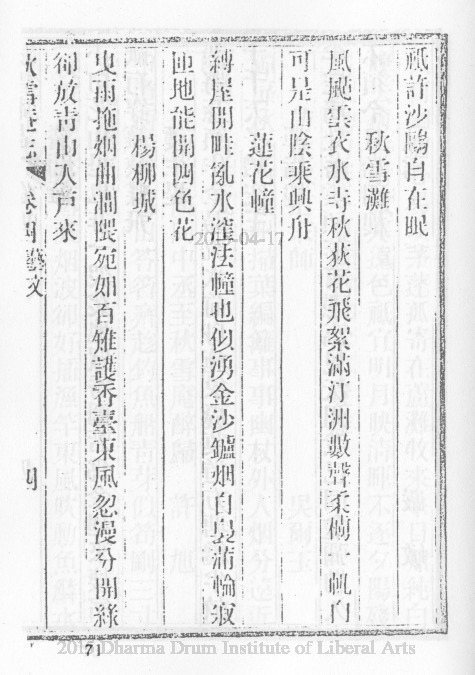 祗許沙鷗自在眠
秋雪灘
風颺雲衣水寺秋荻花飛絮滿汀洲數聲柔櫓一帆白
可是山陰乘興舟
蓮花幢
縛屋開畦亂水窪法幢也似湧金沙鑪烟自裊蒲輪寂
匝地能開四色花
楊柳城
曳雨拖烟曲澗隈宛如百雉護香臺東風忽漫分開綠
卻放青山入戸來
秋雪菴志 卷四藝文 四
2015-04-17
71
2015 Dharma Drum Institute of Liberal Arts